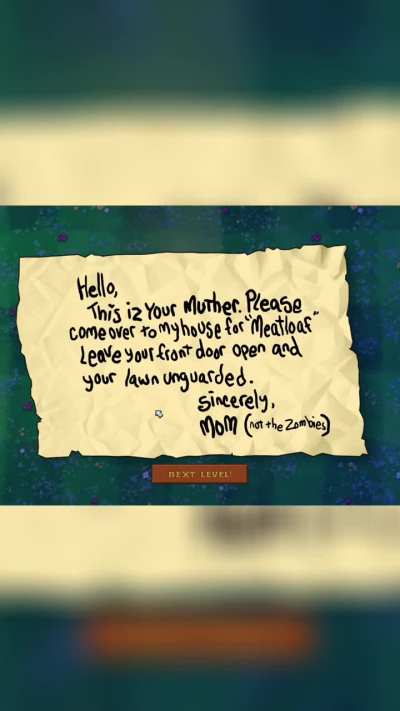 Hello,
This iz Your Muther. Please
come over to myhouse for "Meatloaf"
Leave your front door open and
your lawn unguarded.
Sincerely,
MOM (not the Zombies)
NEXT LEVEL!